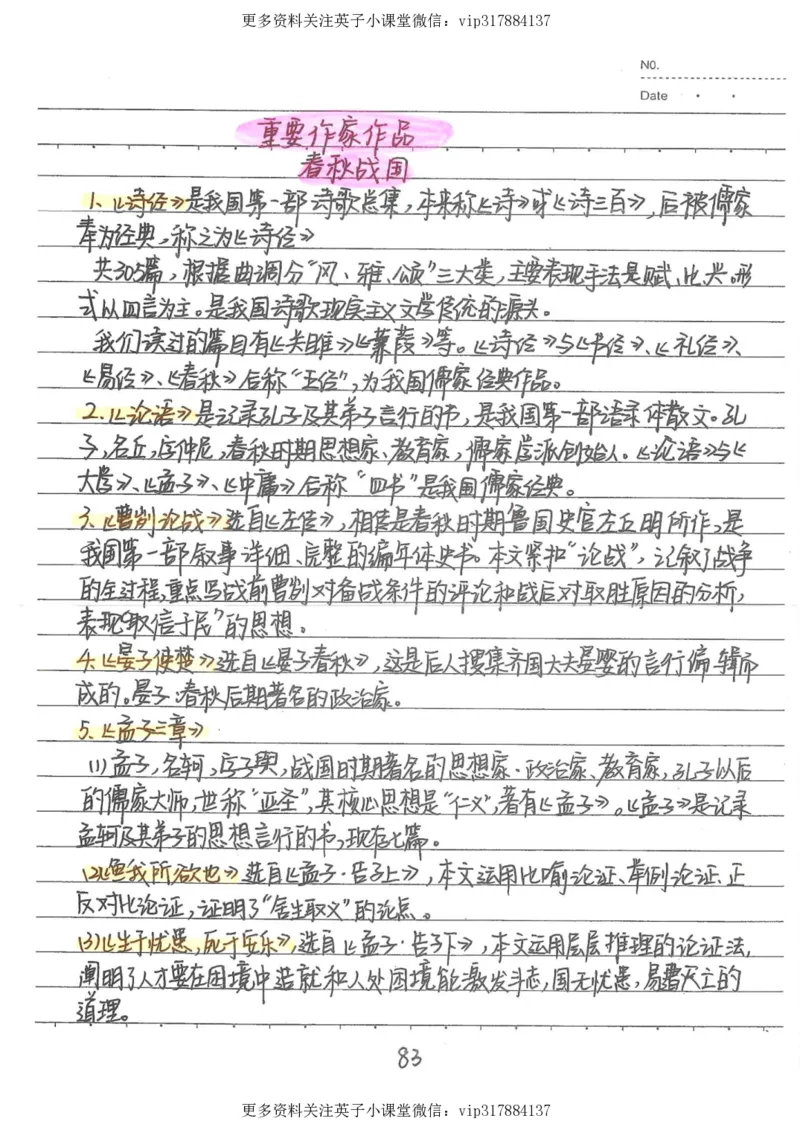 更多资料关注英子小课堂微信：vip317884137
NO.
Date
重要作家作品
春秋战国
1、《诗经》是我国第一部诗歌总集，本来称《诗》或《诗三百》，后被儒家
奉为经典，称之为《诗经》
共305篇，根据曲调分“风、雅、颂”三大类，主要表现手法是赋、比、兴.形
式以四言为主。是我国诗歌现实主义文学传统的源头。
我们读过的篇目有《关雎》《蒹葭》等。《诗经》与《书经》、《礼经》、
《易经》、《春秋》合称“五经”，为我国儒家经典作品。
2、《论语》是记录孔子及其弟子言行的书，是我国第一部语录体散文。孔
子，名丘，字仲尼，春秋时期思想家、教育家，儒家学派创始人。《论语》与《
大学》、《孟子》、《中庸》合称“四书”是我国儒家经典。
3、《曹刿论战》选自《左传》，相传是春秋时期鲁国史官左丘明所作，是
我国第一部叙事详细、完整的编年体史书。本文紧扣“论战”，记叙了战争
的全过程，重点写战前曹刿对备战条件的评论和战后对取胜原因的分析，
表现“取信于民”的思想。
4、《晏子使楚》选自《晏子春秋》，这是后人搜集齐国大夫晏婴的言行编辑而
成的。晏子.春秋后期著名的政治家。
5、《孟子三章》
(1)孟子，名轲，字子舆，战国时期著名的思想家、政治家、教育家，孔子以后
的儒家大师，世称“亚圣”，其核心思想是“仁义”，著有《孟子》。《孟子》是记录
孟轲及其弟子的思想言行的书，现存七篇。
(2)《鱼我所欲也》选自《孟子·告子上》，本文运用比喻论证、举例论证、正
反对比论证，证明了“舍生取义”的论点。
(3)《生于忧患，死于安乐》，选自《孟子·告子下》，本文运用层层推理的论证法，
阐明了人才要在困境中造就和人处困境能激发斗志，国无忧患，易遭灭亡的
道理。
83
更多资料关注英子小课堂微信：vip317884137